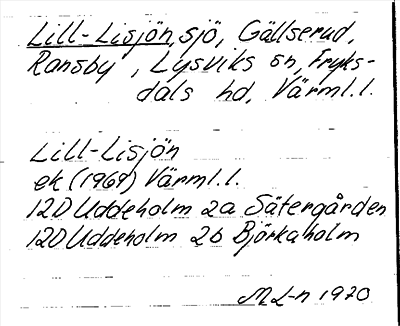 Lill-Lisjön, sjö, Gällserud,
Ransby, Lysviks sn, Fryks-
dals hd, Värml.l.
Lill-Lisjön
ek (1969) Värml.l.
12D Uddeholm 2a Sätergården
12D Uddeholm 2b Björkaholm
ML-n 1970